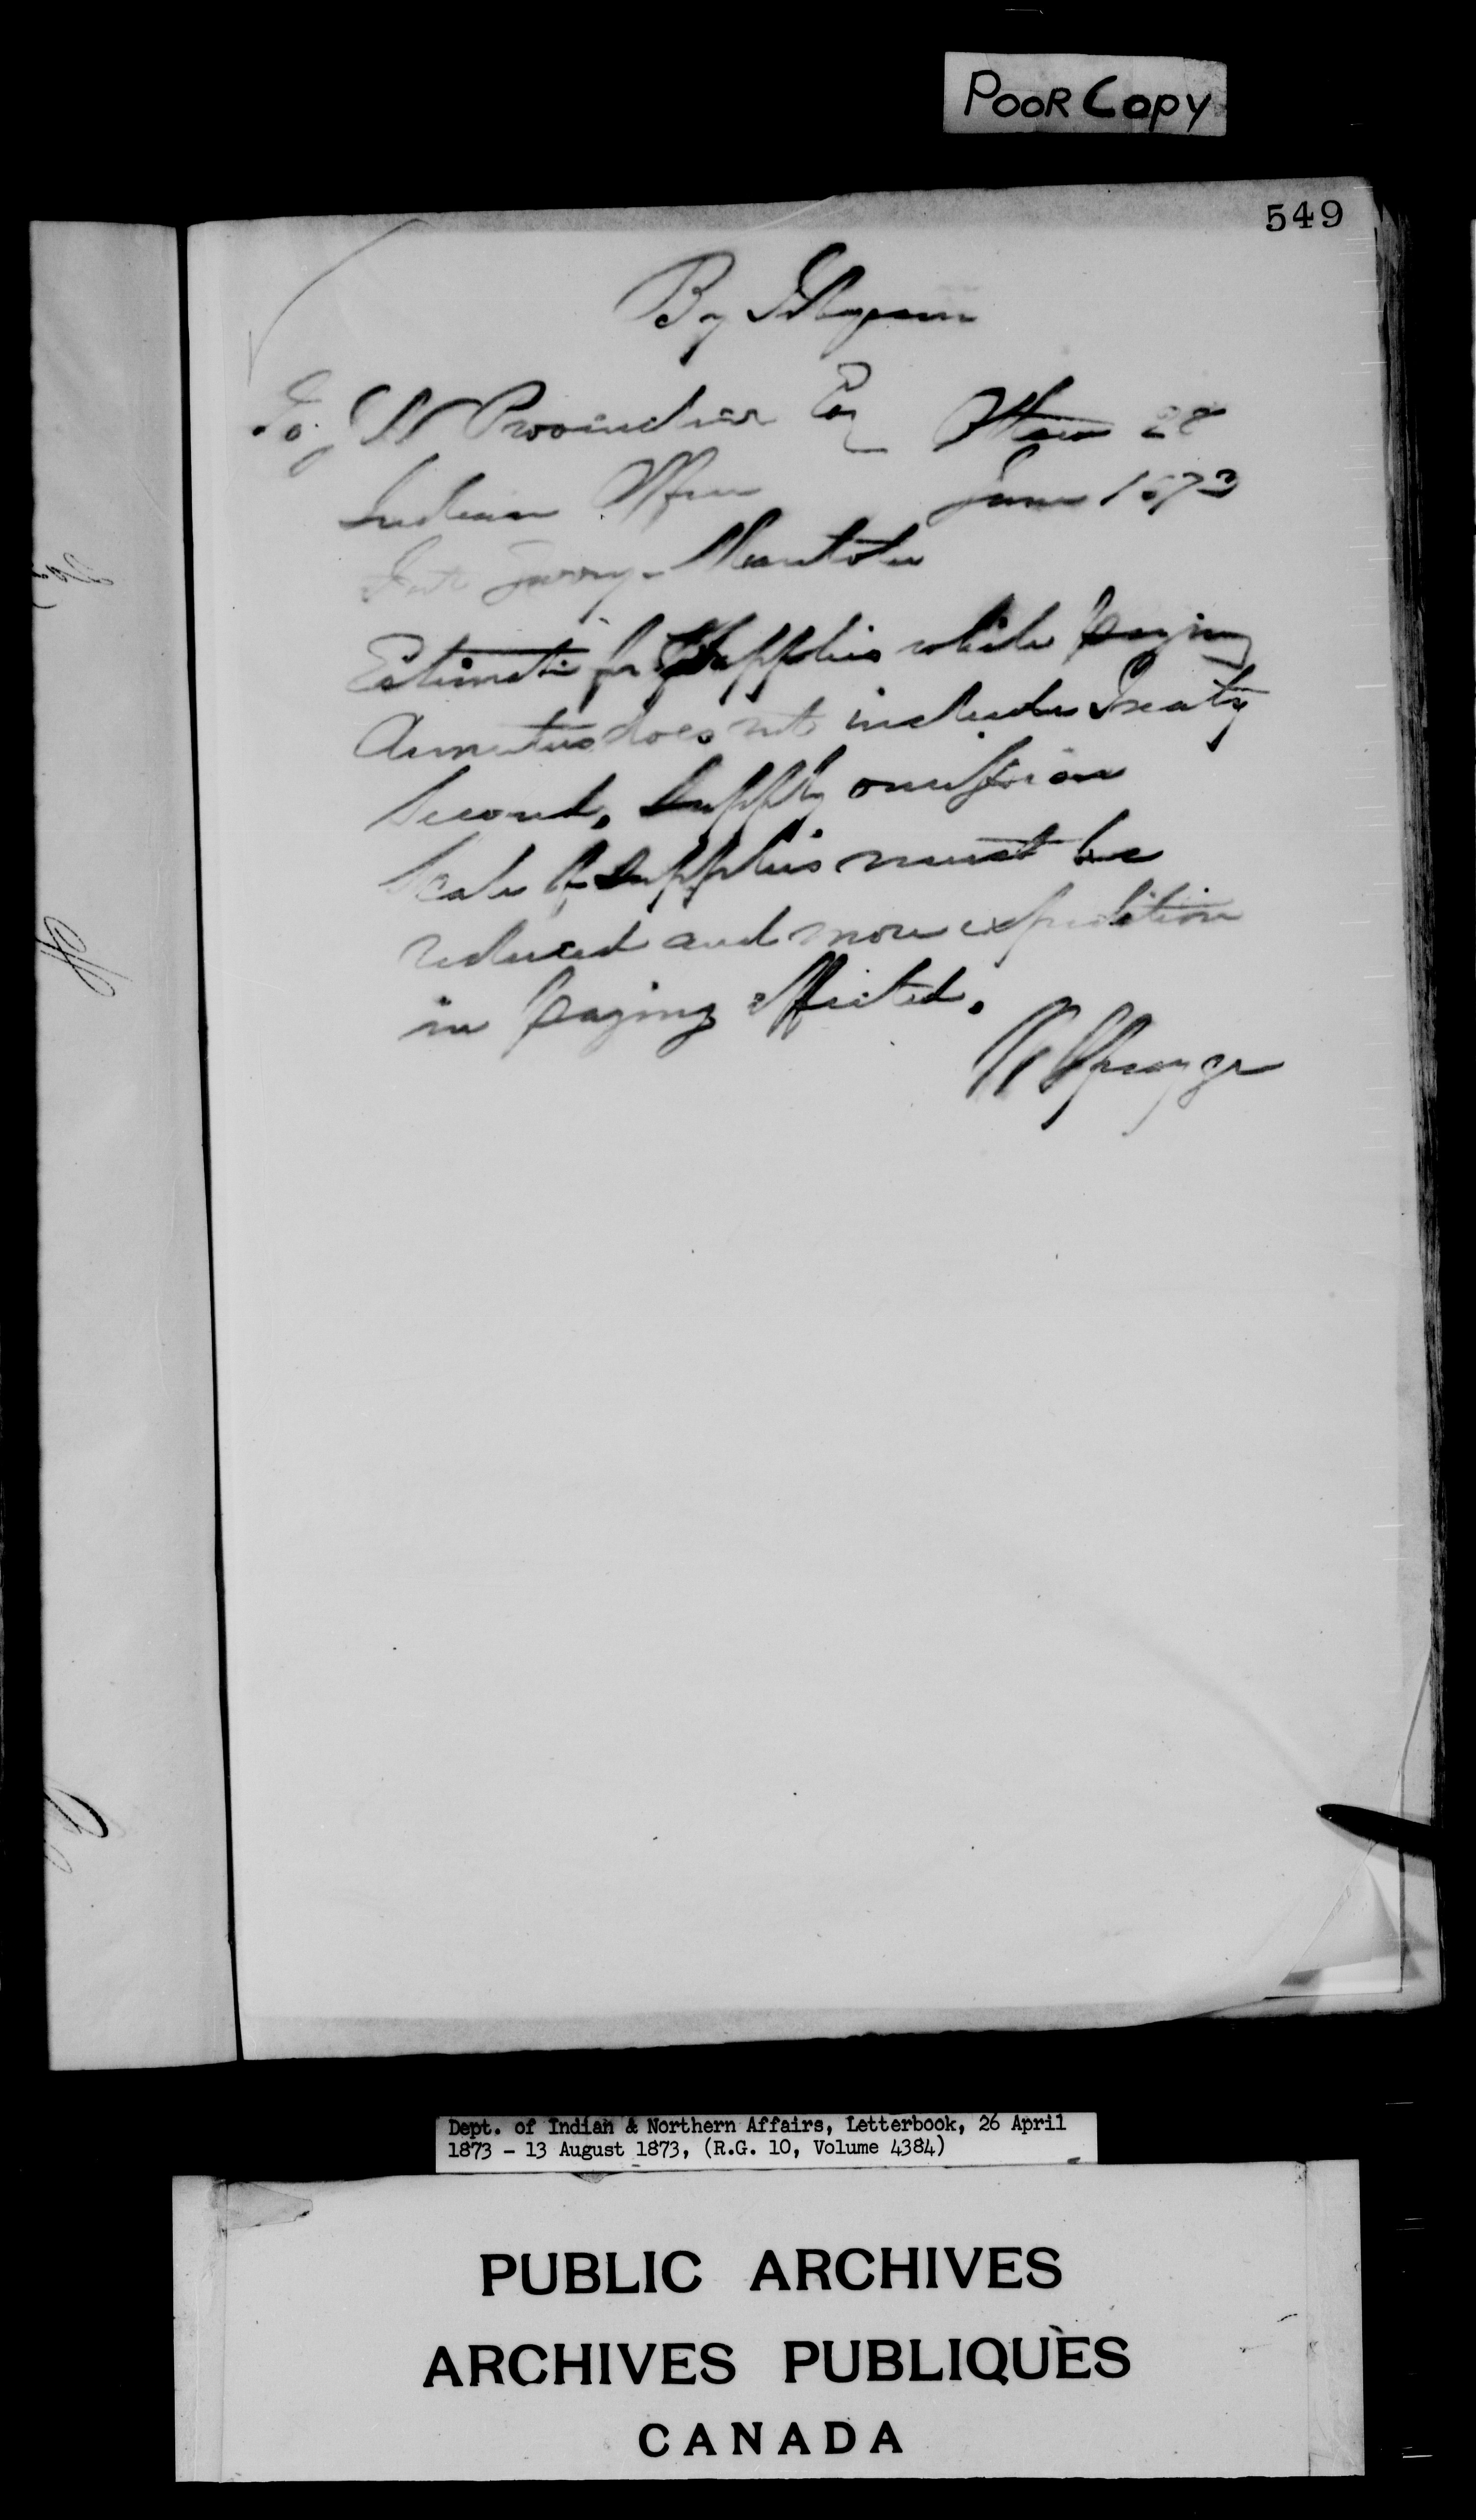 POOR Copy
549
By Telegram
To. J A N Provencher Esq Ottawa 28
Indian Office June 1873
Fort Garry - Manitoba
Estimate for Supplies while paying
Annuities does not include Treaty
Second. Supply omission
Scale of Supplies must be
reduced and more expedition
in paying effected.
W Spragge
Dept. of Indian & Northern Affairs, Letterbook, 26 April
1873 - 13 August 1873, (R.G. 10, Volume 4384)
PUBLIC ARCHIVES
ARCHIVES PUBLIQUES
CANADA